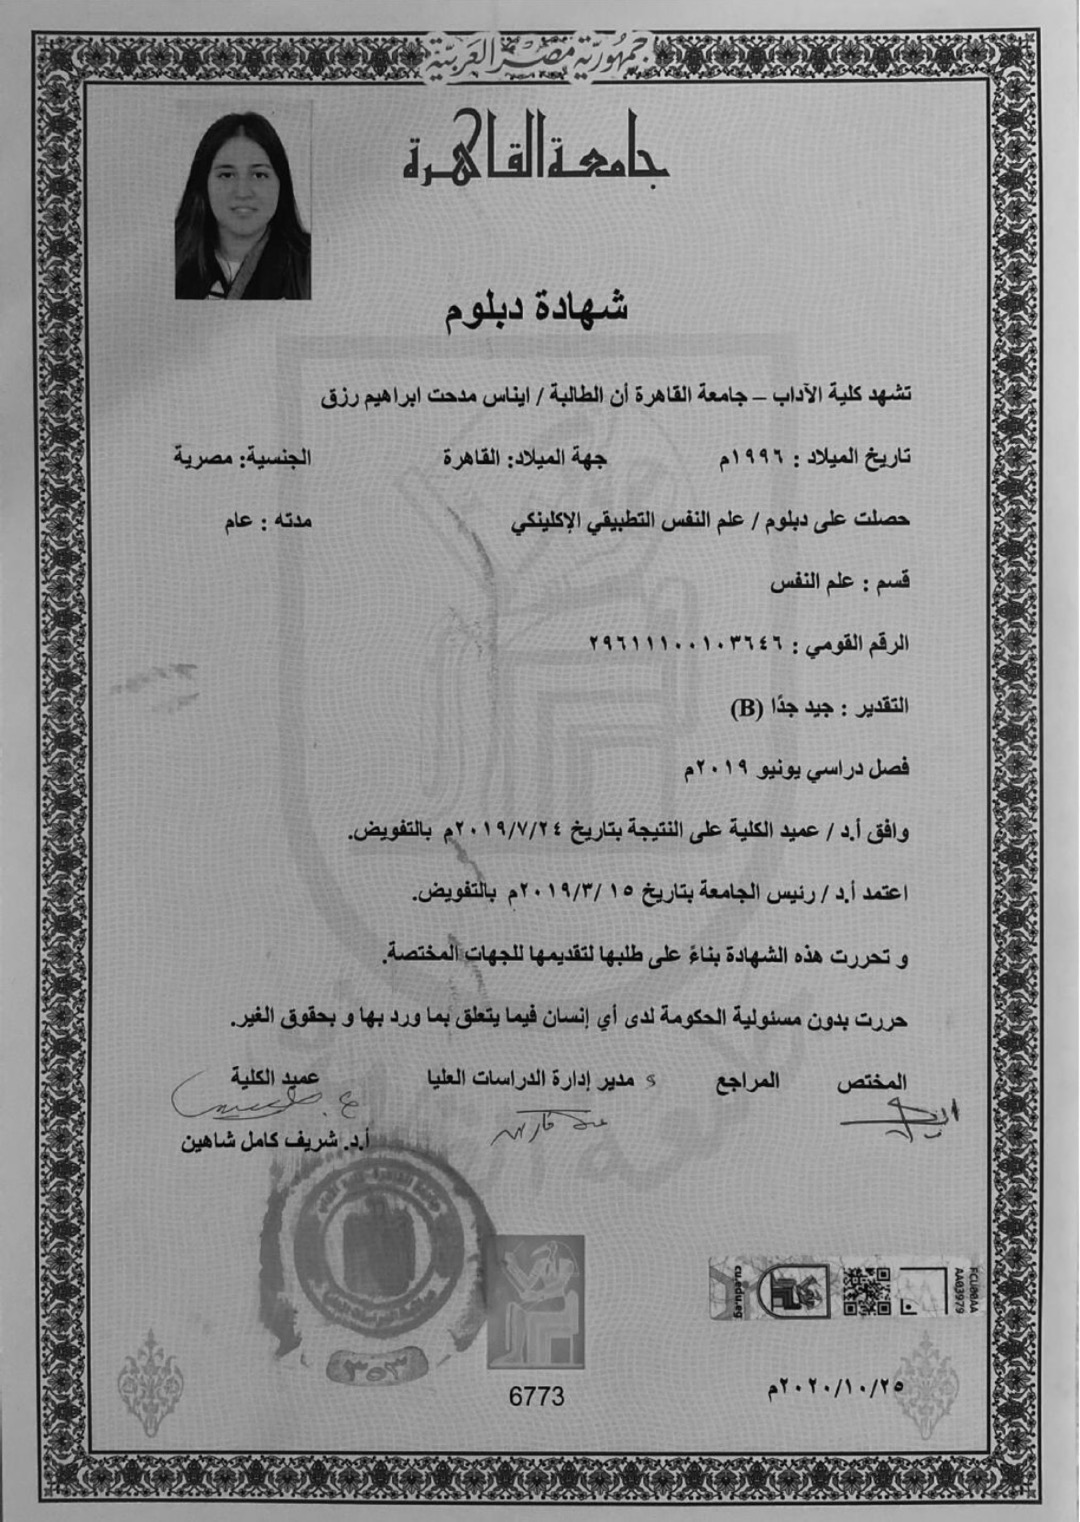 جمهورية مصر العربية
جامعة القاهرة
شهادة دبلوم
تشهد كلية الآداب – جامعة القاهرة أن الطالبة / ايناس مدحت ابراهيم رزق
تاريخ الميلاد : ١٩٩٦م جهة الميلاد: القاهرة الجنسية: مصرية
حصلت على دبلوم / علم النفس التطبيقي الإكلينكي مدته : عام
قسم : علم النفس
الرقم القومي : ٢٩٦١١١٠٠١٠٣٦٤٦
التقدير : جيد جدًا (B)
فصل دراسي يونيو ٢٠١٩م
وافق أ.د / عميد الكلية على النتيجة بتاريخ ٢٠١٩/٧/٢٤م بالتفويض.
اعتمد أ.د / رئيس الجامعة بتاريخ ١٥ /٢٠١٩/٣م بالتفويض.
و تحررت هذه الشهادة بناءً على طلبها لتقديمها للجهات المختصة.
حررت بدون مسئولية الحكومة لدى أي إنسان فيما يتعلق بما ورد بها و بحقوق الغير.
المختص المراجع مدير إدارة الدراسات العليا عميد الكلية
أ.د. شريف كامل شاهين
cu.edu.eg
FCU00AA
AA03979
٣٥٣
6773
٢٠٢٠/١٠/٢٥م